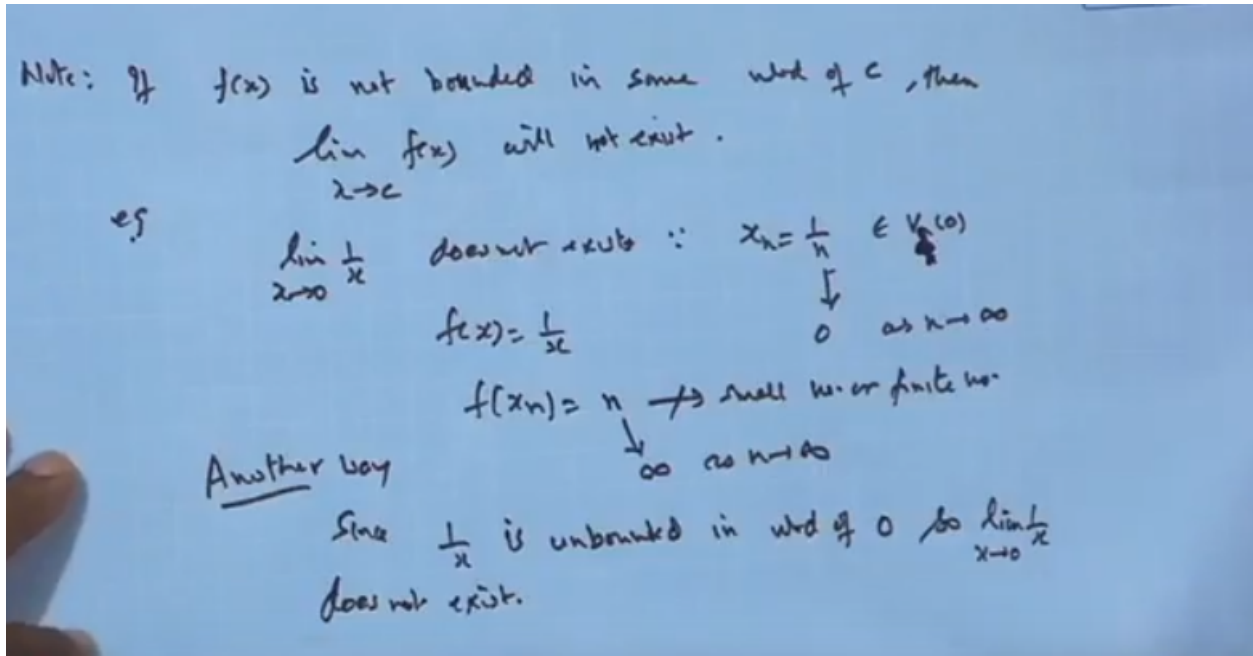 Note: If f(x) is not bounded in some nbd of c, then
lim f(x) will not exist.
x→c
eg
lim 1/x does not exists ∵ xₙ = 1/n ∈ V (0)
x→0 ↓
f(x) = 1/x 0 as n→∞
f(xₙ) = n ↛ small no. or finite no.
↓
Another way ∞ as n→∞
Since 1/x is unbounded in nbd of 0 so lim 1/x
x→0
does not exist.